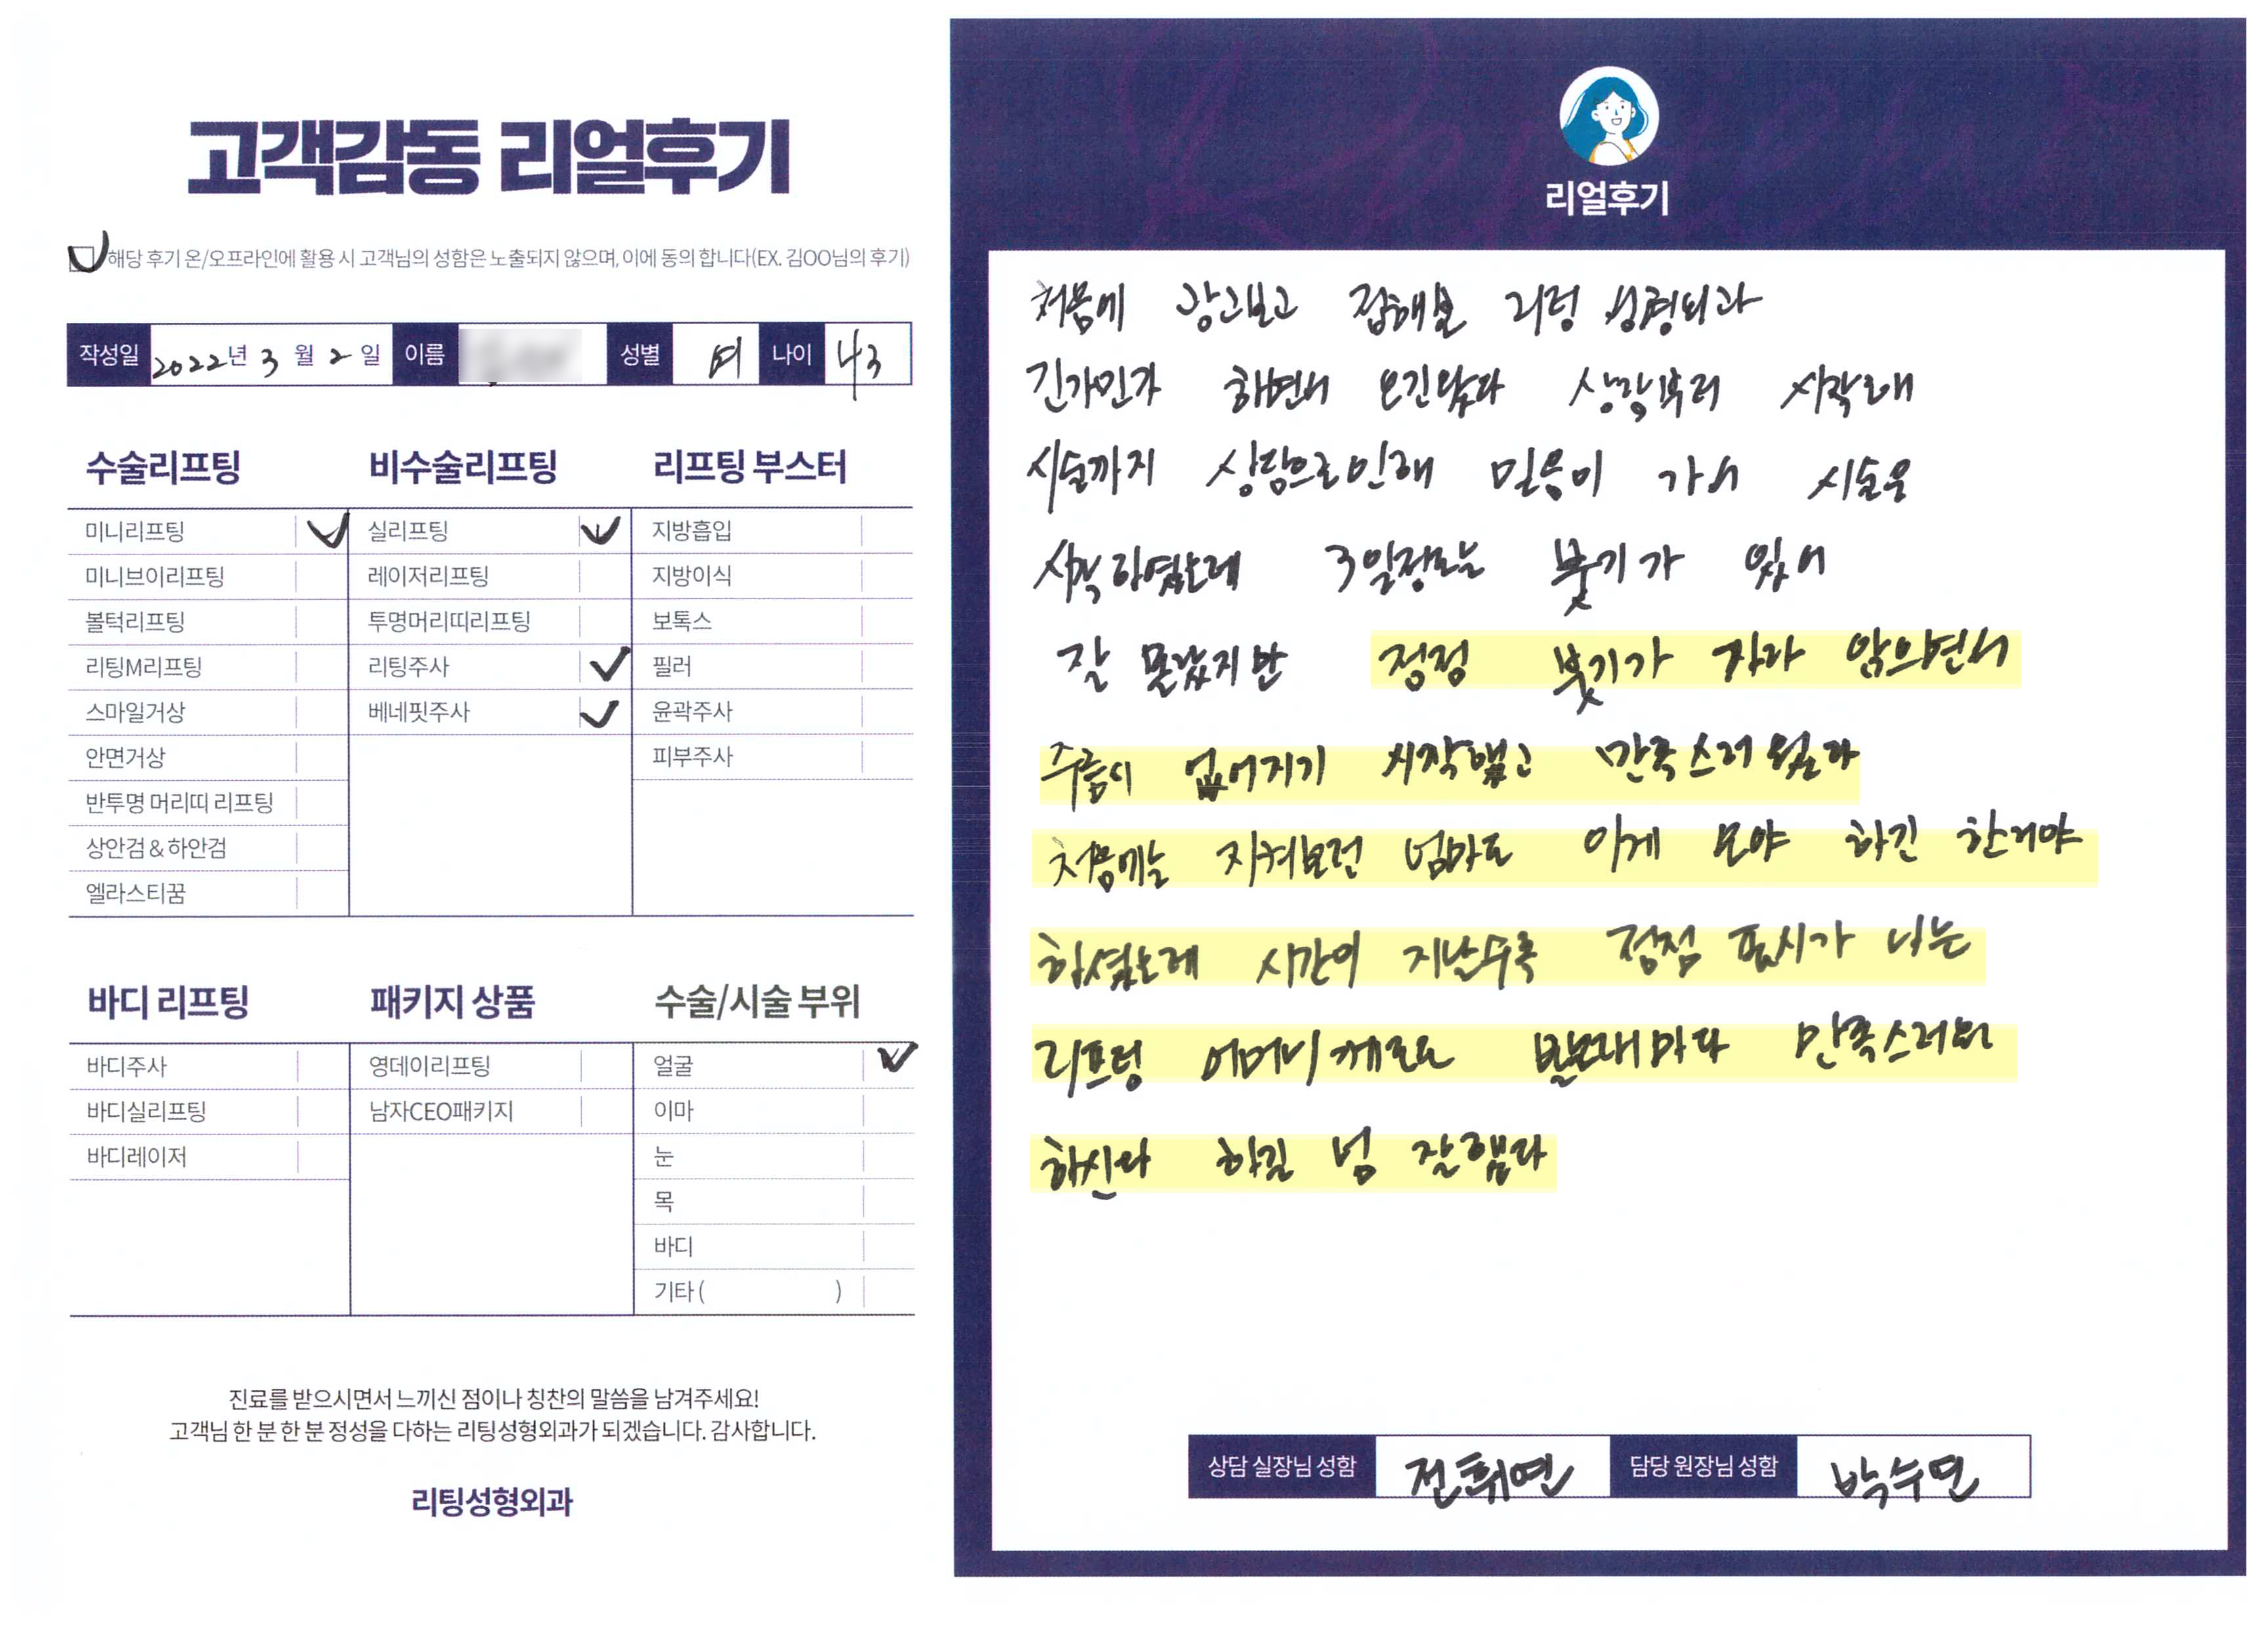 고객감동 리얼후기
해당 후기 온/오프라인에 활용 시 고객님의 성함은 노출되지 않으며, 이에 동의 합니다(EX. 김OO님의 후기)
작성일 2022년 3 월 2 일 이름 성별 여 나이 43
수술리프팅
미니리프팅
미니브이리프팅
볼턱리프팅
리팅M리프팅
스마일거상
안면거상
반투명 머리띠 리프팅
상안검 & 하안검
엘라스티꿈
비수술리프팅
실리프팅
레이저리프팅
투명머리띠리프팅
리팅주사
베네핏주사
리프팅 부스터
지방흡입
지방이식
보톡스
필러
윤곽주사
피부주사
바디 리프팅
바디주사
바디실리프팅
바디레이저
패키지 상품
영데이리프팅
남자CEO패키지
수술/시술 부위
얼굴
이마
눈
목
바디
기타 ( )
진료를 받으시면서 느끼신 점이나 칭찬의 말씀을 남겨주세요!
고객님 한 분 한 분 정성을 다하는 리팅성형외과가 되겠습니다. 감사합니다.
리팅성형외과
리얼후기
처음에 광고보고 접해본 리팅 성형외과
긴가민가 하면서 오긴왔다 상담부터 시작해
시술까지 상담으로인해 믿음이 가서 시술을
시작 하였는데 3일정도는 붓기가 있어
잘 몰랐지만 점점 붓기가 가라 앉으면서
주름이 없어지기 시작했고 만족스러웠다
처음에는 지켜보던 엄마도 이게 모야 하긴 한거야
하셨는데 시간이 지날수록 점점 표시가 나는
리프팅 어머니께로도 볼때마다 만족스러워
하신다 하길 넘 잘했다
상담 실장님 성함 전휘연 담당 원장님 성함